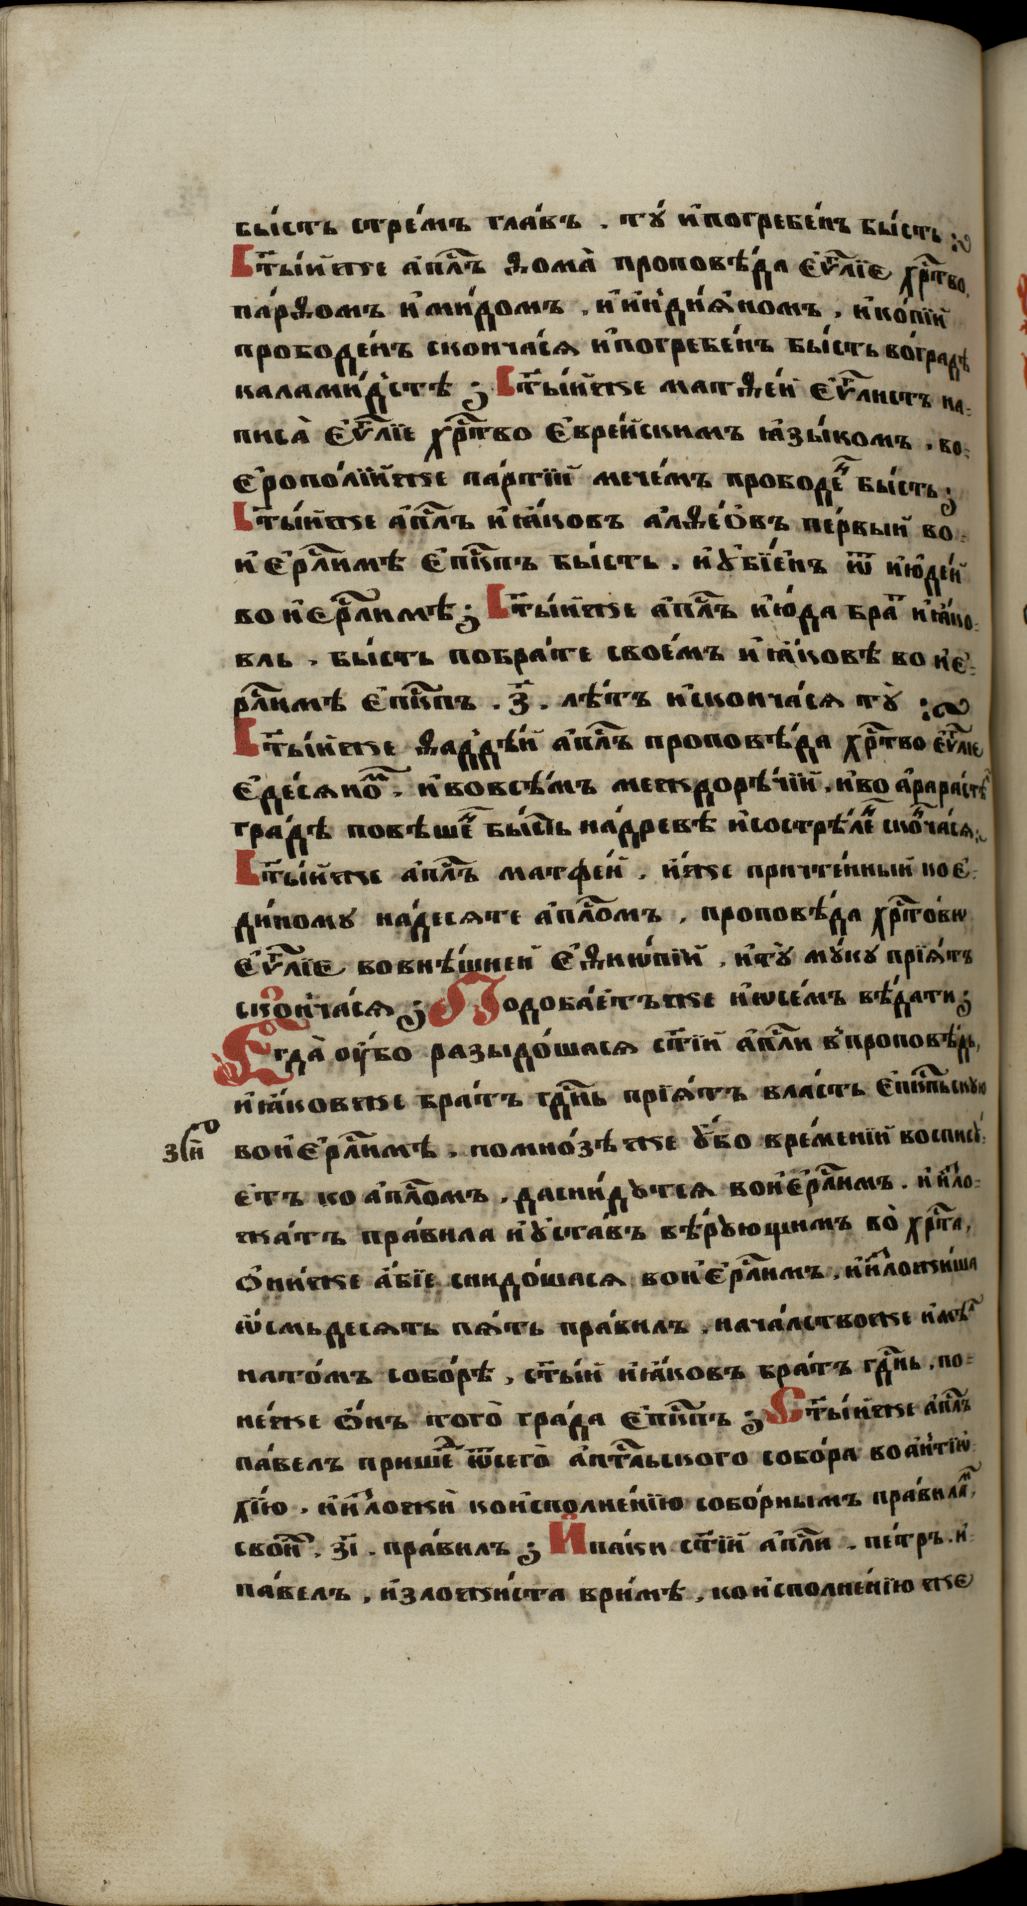 бы́сть стре́мъ гла́въ . тꙋ́ и҆погребе́нъ бы́сть :~
Ст҃ы́йже а҆пл҃ъ ѳома̀ проповѣ́да є҆ѵⷢ҇лїе хрⷭ҇тво,
па́рѳомъ и҆ми́домъ , и҆и҆нді́ѧномъ , и҆ко́пїй
прободе́нъ сконча́сѧ и҆погребе́нъ бы́сть во́градѣ
калами́дстѣ ; Ст҃ы́йже матѳе́й є҆ѵⷢ҇листъ на-
писа̀ є҆ѵⷢ҇лїе хрⷭ҇тво є҆вре́йскимъ ꙗ҆зы́комъ , во-
є҆ропо́лїйже па́ртїй мече́мъ прободеⷩ҇ бы́сть ;
Ст҃ы́йже а҆пл҃ъ и҆ꙗ҆́ковъ а҆лѳе́ѻвъ пе́рвый во-
и҆єрⷭ҇ли́мѣ є҆пⷭ҇кпъ бы́сть . и҆ᲂу҆бїе́нъ ѿ и҆юде́й
во и҆єрⷭ҇ли́мѣ ; Ст҃ы́йже а҆пл҃ъ и҆ю́да браⷮ и҆ꙗ҆́ко-
вль , бы́сть побра́те свое́мъ и҆ꙗ҆́ковѣ во и҆є-
рⷭ҇ли́мѣ є҆пⷭ҇кпъ . з҃ . лѣ́тъ и҆сконча́сѧ тꙋ̀ :~
Ст҃ы́йже ѳадде́й а҆пл҃ъ проповѣ́да хрⷭ҇тво є҆ѵⷢ҇лїе
є҆де́сѧноⷨ . и҆вовсѣ́мъ междорѣ́чїй , и҆во а҆рара́стѣⷨ
гра́дѣ повѣшеⷩ҇ бы́сть на́древѣ и҆сострѣ́леⷩ҇ скоⷩ҇ча́сѧ:~
Ст҃ы́йже а҆пл҃ъ матфе́й , и҆́же причте́нный ко є҆-
ди́ному на́десѧте а҆пⷭ҇ломъ , проповѣ́да хрⷭ҇то́вѡ
є҆ѵⷢ҇лїе вовнѣ́шней є҆ѳиѡ́пїй , и҆тꙋ̀ мꙋ́кꙋ прїѧ́тъ
сконча́сѧ ; Подоба́етъже и҆ѡсе́мъ вѣ́дати ;
Єгда̀ оу҆́бо разыдо́шасѧ ст҃і́й а҆пⷭ҇ли в проповѣ́дь,
и҆ꙗ҆́ковже бра́тъ гдⷭ҇нь прїѧ́тъ вла́сть є҆пⷭ҇кпьскꙋю
во и҆єрⷭ҇ли́мѣ , помно́зѣже ᲂу҆́бо вре́менїй воспис꙽ꙋ-
етъ ко а҆пⷭ҇ломъ , дасни́дꙋтсѧ во и҆єрⷭ҇ли́мъ . и҆и҆ⷥло-
жа́тъ пра́вила и҆ᲂу҆ста́въ вѣ́рꙋющимъ во̀ хрⷭ҇та̀,
Ѻни́же а҆́бїе снидо́шасѧ во и҆єрⷭ҇ли́мъ , и҆и҆ⷥложи́ша
ѻ҆́смьдесѧтъ пѧ́ть пра́вилъ , нача́лствоже и҆мѣⷧ
нато́мъ собо́рѣ , ст҃ы́й и҆ꙗ҆́ковъ бра́тъ гдⷭ҇нь , по-
не́же ѻ҆́нъ того̀ гра́да є҆пⷭ҇кпъ ; Ст҃ы́йже а҆пл҃ъ
па́велъ пришеⷣ ѿсего̀ а҆пⷭ҇тльского собо́ра во а҆нтїѡ-
хі́ю , и҆и҆ⷥложи́ коисполне́нїю собо́рнымъ пра́вилаⷨ,
своиⷯ . з҃і . пра́вилъ ; И҆па́ки ст҃і́й а҆пⷭ҇ли . пе́тръ . и҆
па́велъ , и҆зложи́ста в ри́мѣ , коисполне́нїю же